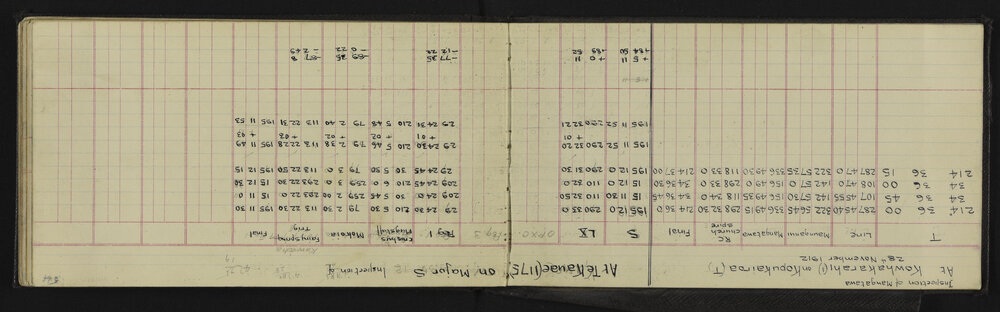 Inspection of Mangatawa
At Kawhakarahi(1) on Kopukairoa (T)
28th November 1912
T Line Maunganui Mangatawa RC church spire Final
214 36 00 287 45 40 322 56 45 336 49 15 298 32 30 214 36 0
34 36 45 107 45 55 142 57 30 156 49 35 118 34 0 34 36 45
34 36 00 108 47 0 142 57 0 156 49 0 298 33 0 34 36 30
214 36 15 287 47 0 322 57 35 336 49 30 118 33 0 214 37 00
At Te Kanae (1175) on Major S Inspection of
S LX Peg 1 Flagstaff Makaia Fanny Spong Trig Final
195 12 0 290 33 0 29 24 30 210 5 30 79 2 30 113 22 30 195 11 30
15 11 30 110 32 50 209 24 30 30 5 45 259 2 00 293 22 30 15 11 0
15 12 0 110 32 0 209 24 45 210 6 0 259 3 0 293 22 30 15 12 30
195 12 0 290 31 30 29 24 45 30 5 50 79 3 0 113 22 50 195 12 15
195 11 52 290 32 20 29 24 30 210 5 46 79 2 38 113 22 28 195 11 49
+ 01 + 01 + 02 + 02 + 03 + 03
195 11 52 290 32 21 29 24 31 210 5 48 79 2 40 113 22 31 195 11 53
+ 5 11 + 0 11 -77 35 -69 35 -67 8
+84 50 +89 52 -12 22 -0 22 -2 49